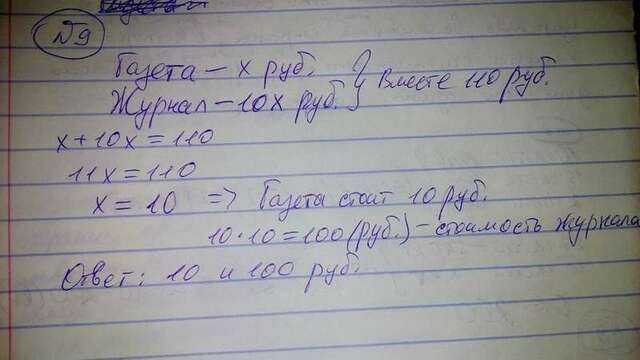 №9
Газета – х руб. } Вместе 110 руб.
Журнал – 10х руб.
х + 10х = 110
11х = 110
х = 10 => Газета стоит 10 руб.
10·10 = 100 (руб.) – стоимость журнала
Ответ: 10 и 100 руб.